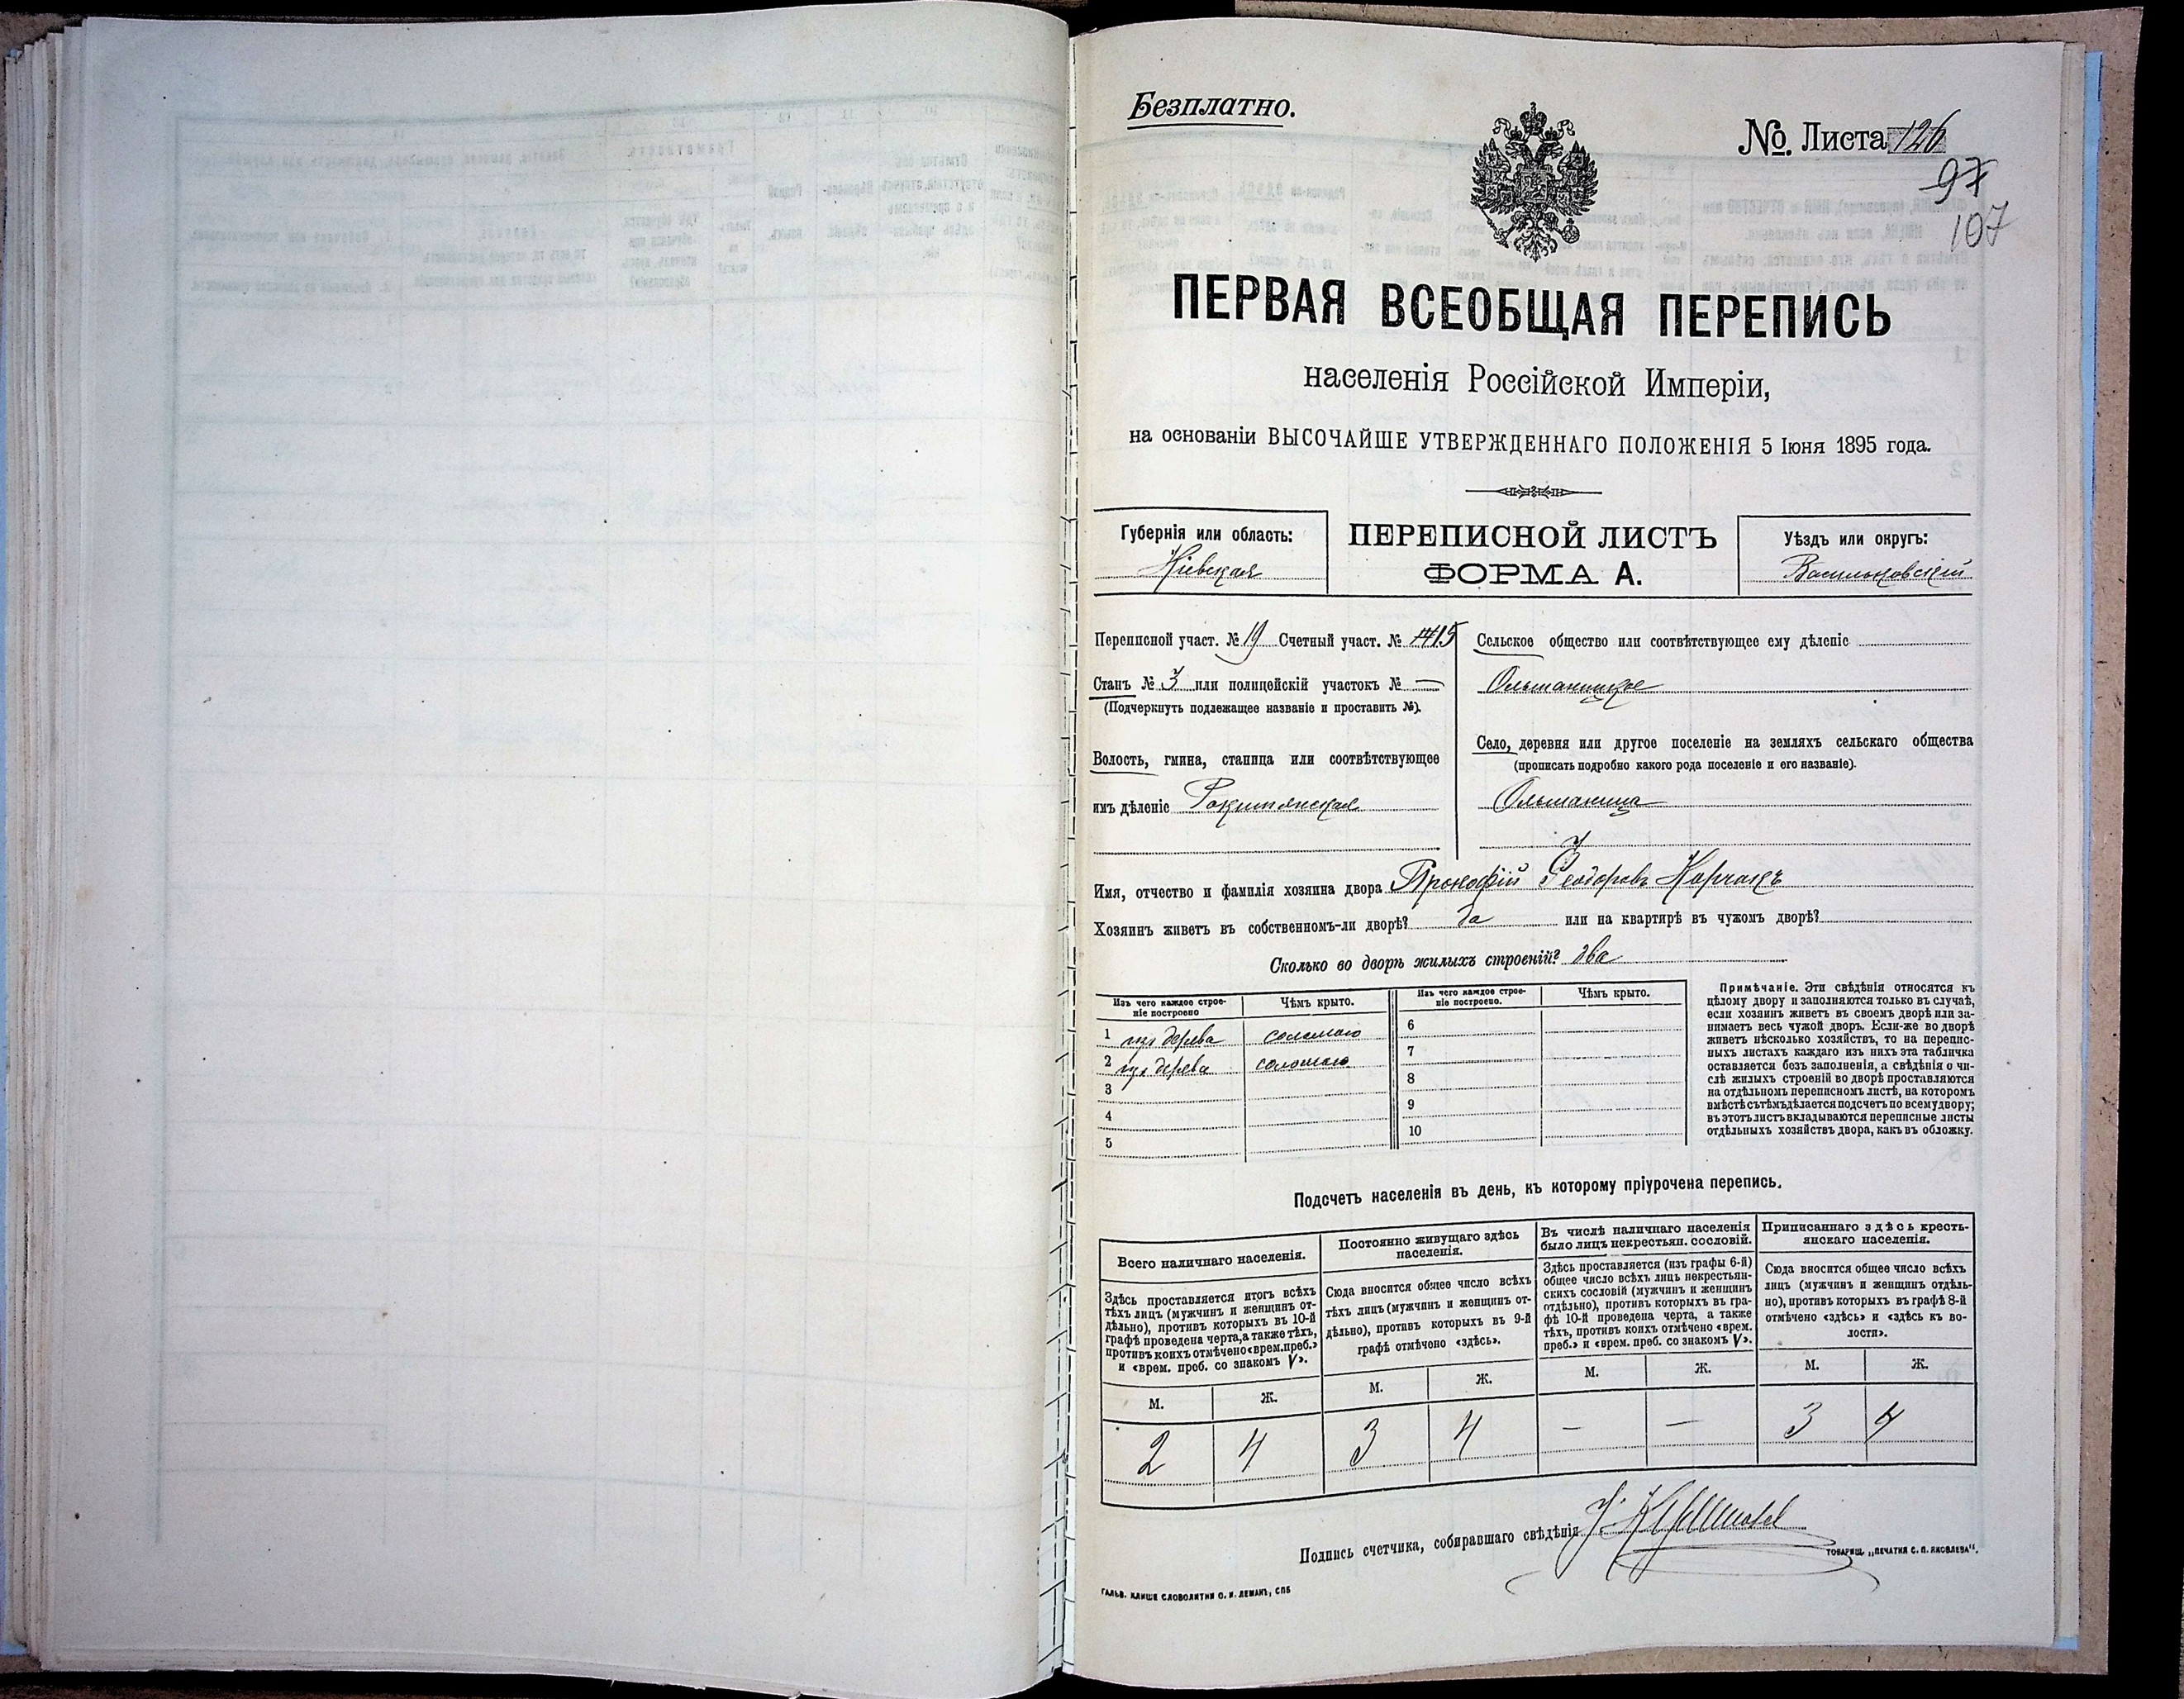 Безплатно.
№. Листа 126
97
107
ПЕРВАЯ ВСЕОБЩАЯ ПЕРЕПИСЬ
населенія Россійской Имперіи,
на основаніи ВЫСОЧАЙШЕ УТВЕРЖДЕННАГО ПОЛОЖЕНІЯ 5 Іюня 1895 года.
Губернія или область:
Кіевская
ПЕРЕПИСНОЙ ЛИСТЪ
ФОРМА А.
Уѣздъ или округъ:
Васильковскій
Переписной участ. № 19 Счетный участ. № 15
Станъ № 3 или полицейскій участокъ № —
(Подчеркнуть подлежащее названіе и проставить №).
Волость, гмина, станица или соотвѣтствующее
имъ дѣленіе Рокитянская
Сельское общество или соотвѣтствующее ему дѣленіе
Ольшаницкое
Село, деревня или другое поселеніе на земляхъ сельскаго общества
(прописать подробно какого рода поселеніе и его названіе).
Ольшаница
Имя, отчество и фамилія хозяина двора Прокофій Ѳеодоровъ Корчакъ
Хозяинъ живетъ въ собственномъ-ли дворѣ? да или на квартирѣ въ чужомъ дворѣ?
Сколько во дворѣ жилыхъ строеній? два
Изъ чего каждое строе-
ніе построено
Чѣмъ крыто.
Изъ чего каждое строе-
ніе построено.
Чѣмъ крыто.
1 изъ дерева соломою
2 изъ дерева соломою
3
4
5
6
7
8
9
10
Примѣчаніе. Эти свѣдѣнія относятся къ
цѣлому двору и заполняются только въ случаѣ,
если хозяинъ живетъ въ своемъ дворѣ или за-
нимаетъ весь чужой дворъ. Если-же во дворѣ
живетъ нѣсколько хозяйствъ, то на перепис-
ныхъ листахъ каждаго изъ нихъ эта табличка
оставляется безъ заполненія, а свѣдѣнія о чи-
слѣ жилыхъ строеній во дворѣ проставляются
на отдѣльномъ переписномъ листѣ, на которомъ
вмѣстѣ съ тѣмъ дѣлается подсчетъ по всему двору;
въ этотъ листъ вкладываются переписные листы
отдѣльныхъ хозяйствъ двора, какъ въ обложку.
Подсчетъ населенія въ день, къ которому пріурочена перепись.
Всего наличнаго населенія.
Здѣсь проставляется итогъ всѣхъ
тѣхъ лицъ (мужчинъ и женщинъ от-
дѣльно), противъ которыхъ въ 10-й
графѣ проведена черта, а также тѣхъ,
противъ коихъ отмѣчено «врем. преб.»
и «врем. преб. со знакомъ V».
М. Ж.
2 4
Постоянно живущаго здѣсь
населенія.
Сюда вносится общее число всѣхъ
тѣхъ лицъ (мужчинъ и женщинъ от-
дѣльно), противъ которыхъ въ 9-й
графѣ отмѣчено «здѣсь».
М. Ж.
3 4
Въ числѣ наличнаго населенія
было лицъ некрестьян. сословій.
Здѣсь проставляется (изъ графы 6-й)
общее число всѣхъ лицъ некрестьян-
скихъ сословій (мужчинъ и женщинъ
отдѣльно), противъ которыхъ въ гра-
фѣ 10-й проведена черта, а также
тѣхъ, противъ коихъ отмѣчено «врем.
преб.» и «врем. преб. со знакомъ V».
М. Ж.
— —
Приписаннаго здѣсь кресть-
янскаго населенія.
Сюда вносится общее число всѣхъ
лицъ (мужчинъ и женщинъ отдѣль-
но), противъ которыхъ въ графѣ 8-й
отмѣчено «здѣсь» и «здѣсь къ во-
лости».
М. Ж.
3 4
Подпись счетчика, собиравшаго свѣдѣнія
ТОВАРИЩ. „ПЕЧАТНЯ С. П. ЯКОВЛЕВА".
ГАЛЬВ. КЛИШЕ СЛОВОЛИТНИ О. И. ЛЕМАНЪ, СПБ